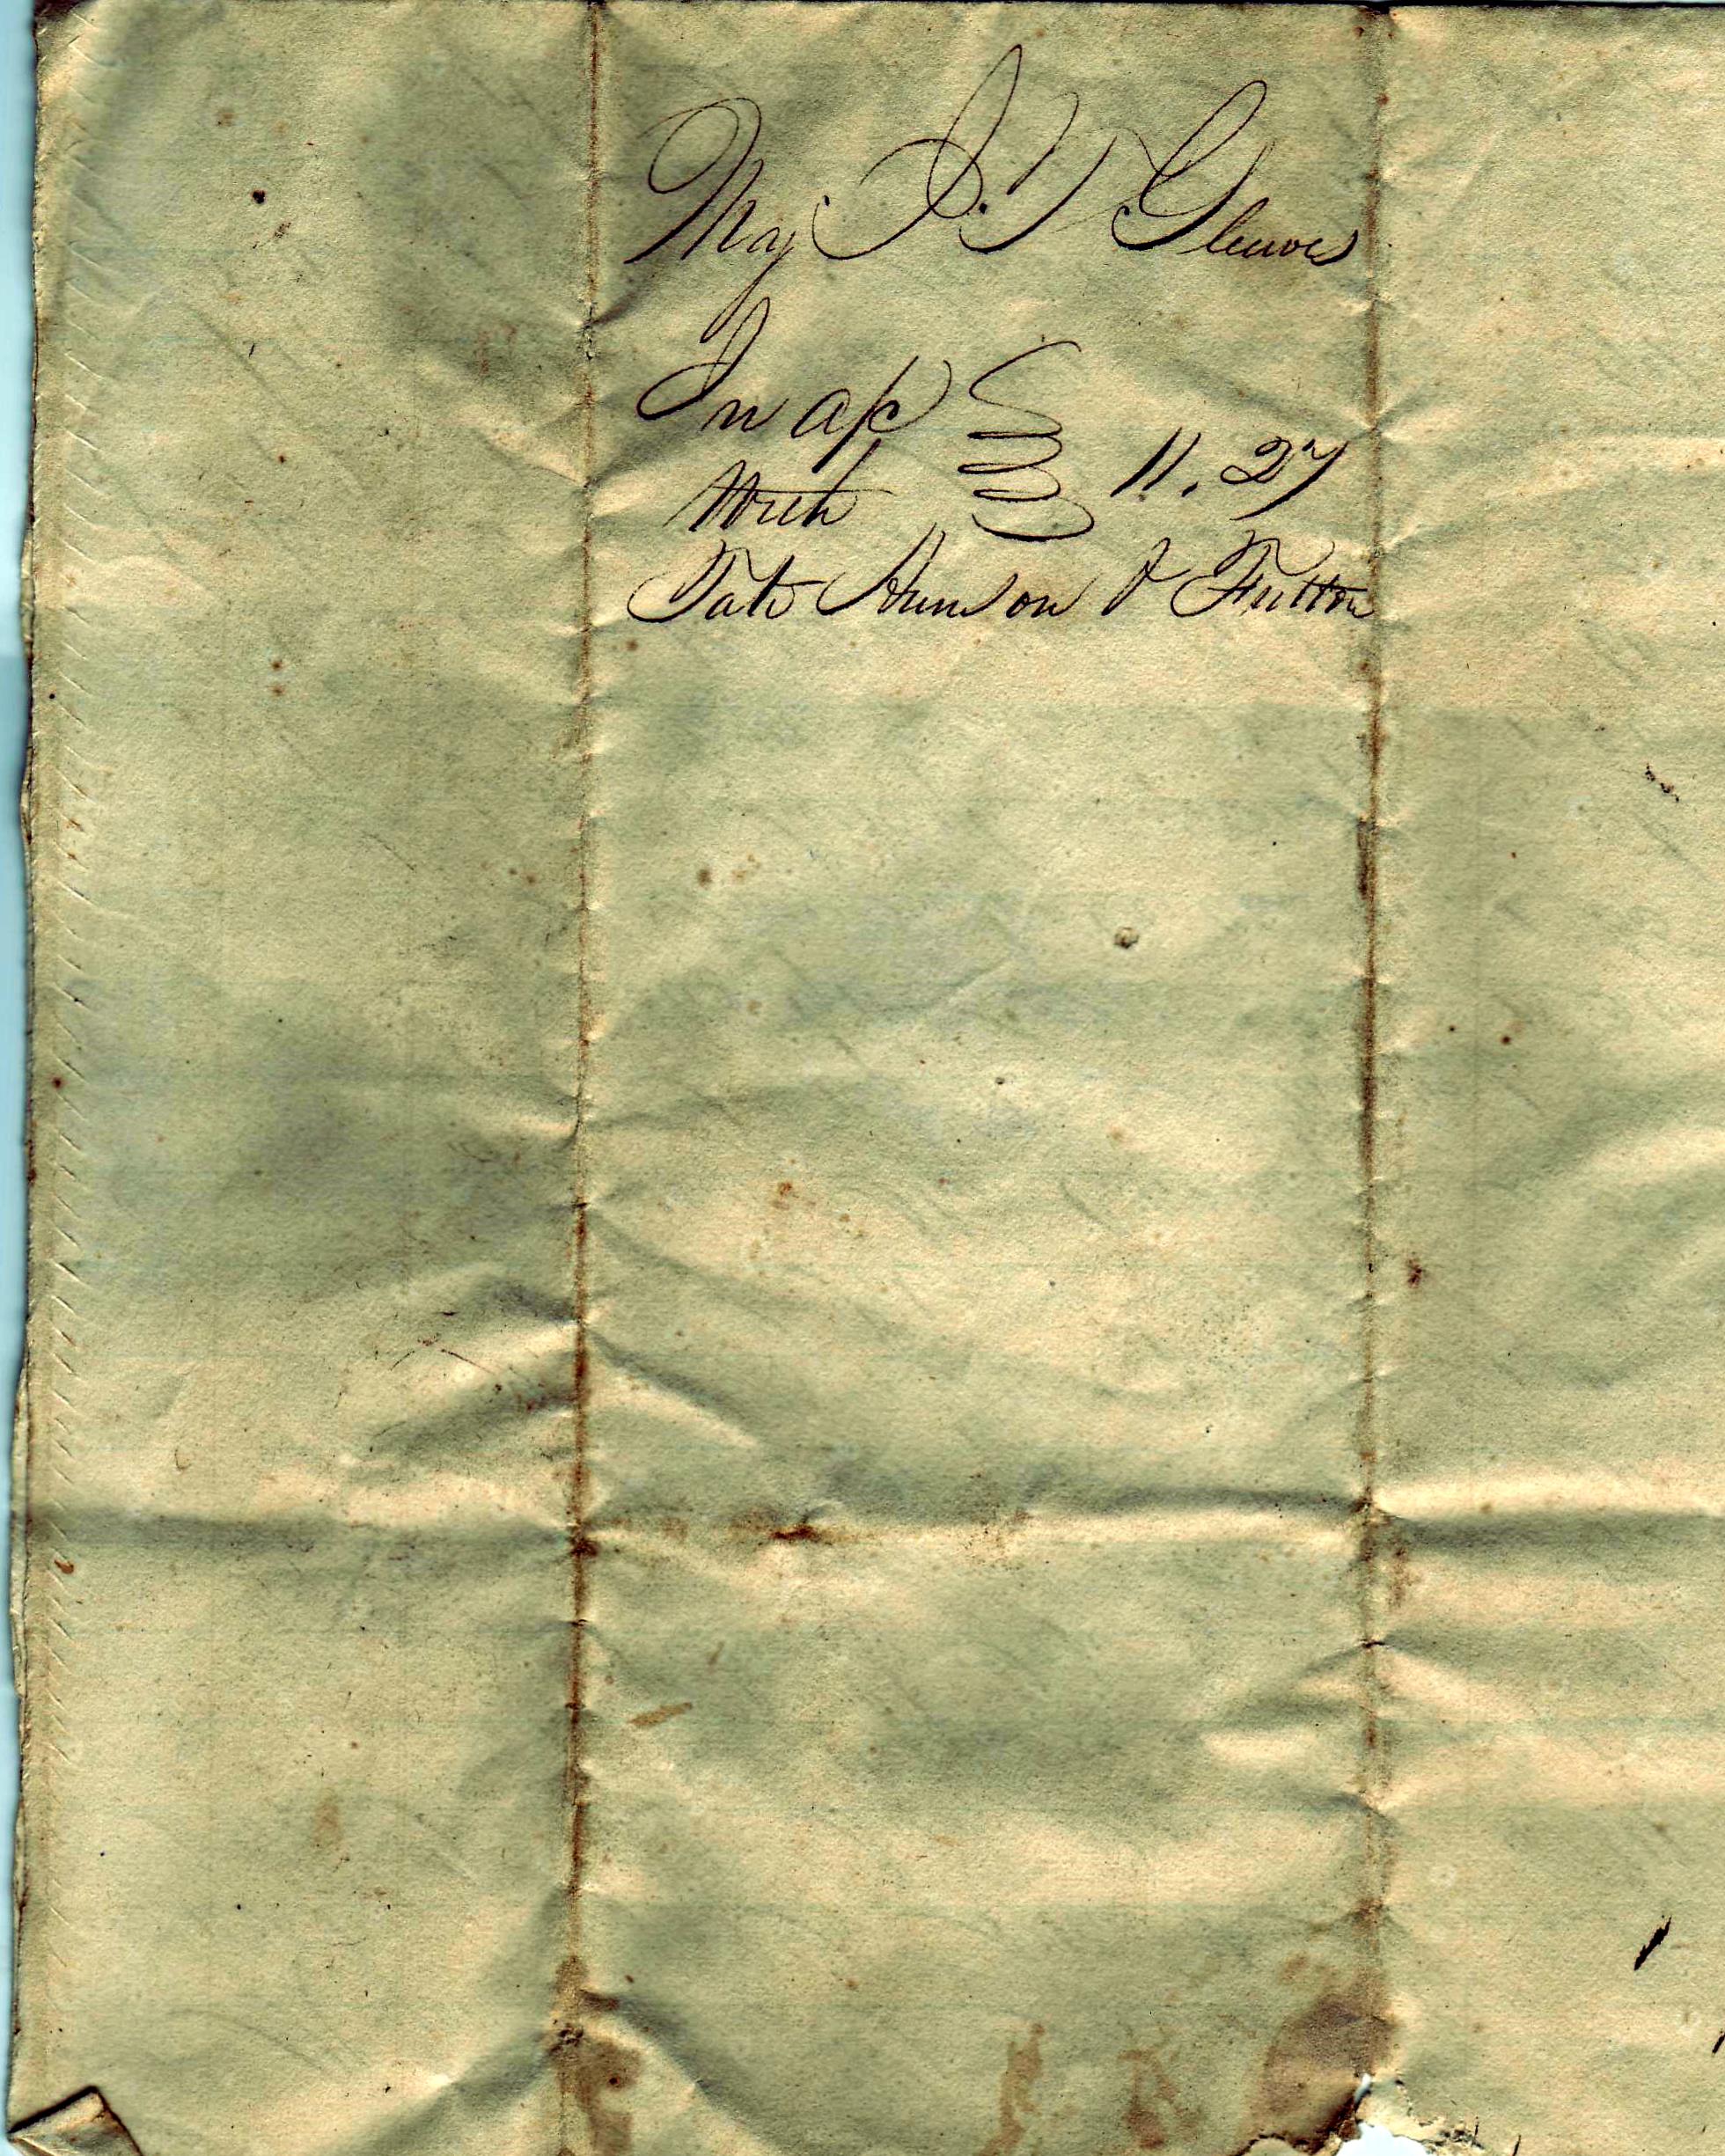 Maj J. T Gleaves
In a/c
With } 11.27
Tate Hunson & Fulton